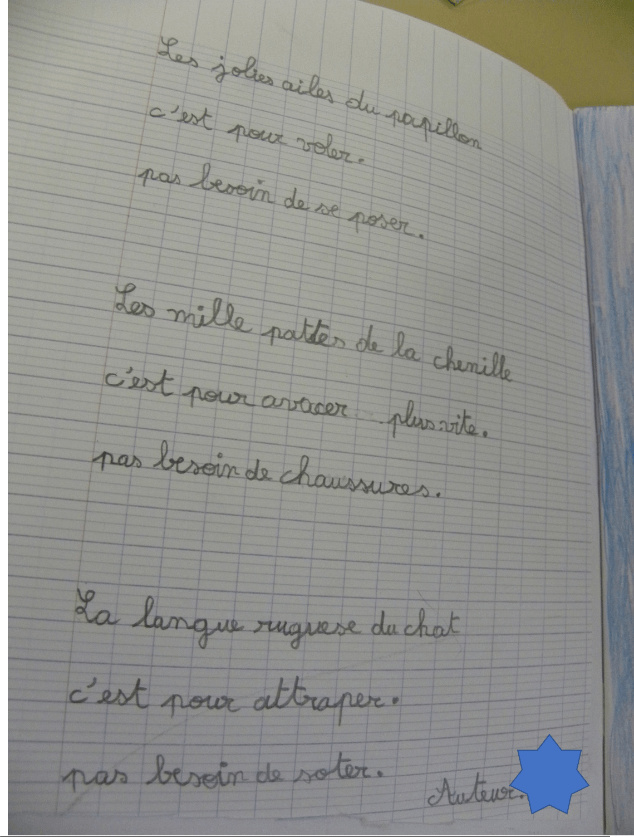 Les jolies ailes du papillon
c'est pour voler.
pas besoin de se poser.
Les mille pattes de la chenille
c'est pour avacer plus vite.
pas besoin de chaussures.
La langue ruguese du chat
c'est pour attraper.
pas besoin de soter.
Auteur.